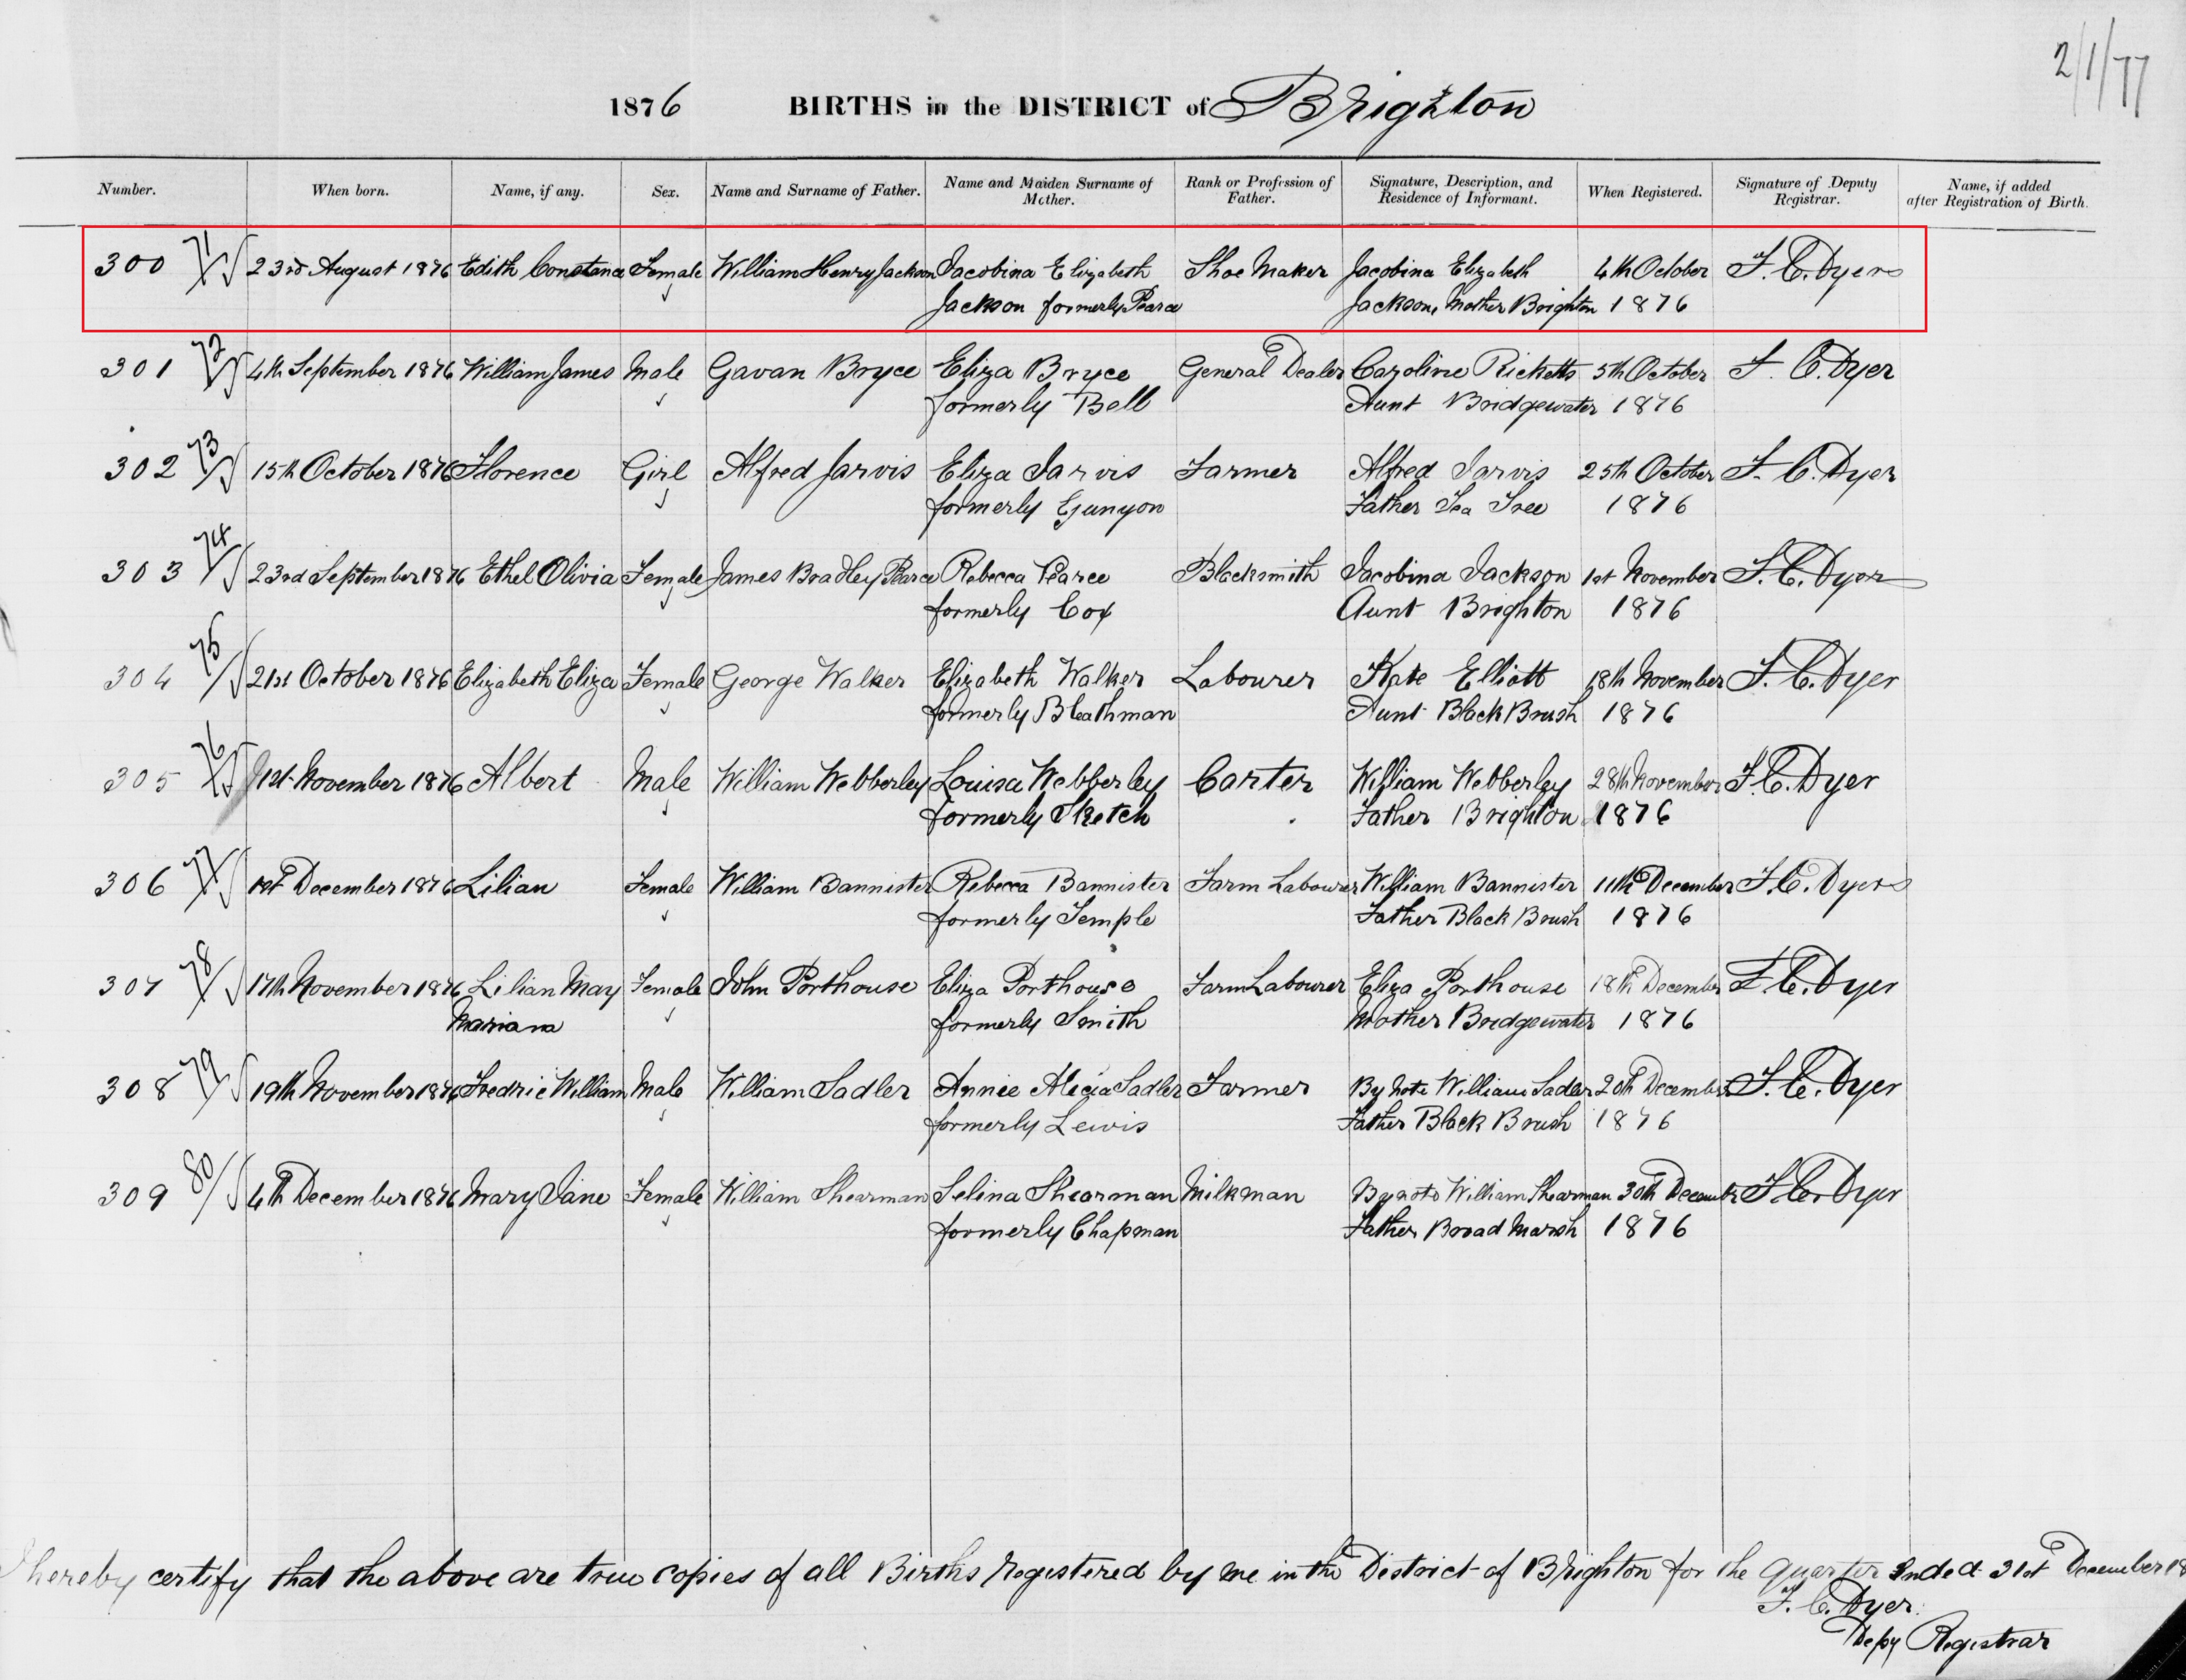 2/1/77
1876 BIRTHS in the DISTRICT of Brighton
Number. When born. Name, if any. Sex. Name and Surname of Father. Name and Maiden Surname of Mother. Rank or Profession of Father. Signature, Description, and Residence of Informant. When Registered. Signature of Deputy Registrar. Name, if added after Registration of Birth.
300 71 23rd August 1876 Edith Constance Female William Henry Jackson Jacobina Elizabeth Shoe Maker Jacobina Elizabeth 4th October F. C. Dyer
Jackson formerly Pearce Jackson, Mother Brighton 1876
301 72 4th September 1876 William James Male Gavan Bryce Eliza Bryce General Dealer Caroline Ricketts 5th October F. C. Dyer
formerly Bell Aunt Bridgewater 1876
302 73 15th October 1876 Florence Girl Alfred Jarvis Eliza Jarvis Farmer Alfred Jarvis 25th October F. C. Dyer
formerly Gunyon Father Tea Tree 1876
303 74 23rd September 1876 Ethel Olivia Female James Bradley Pearce Rebecca Pearce Blacksmith Jacobina Jackson 1st November F. C. Dyer
formerly Cox Aunt Brighton 1876
304 75 21st October 1876 Elizabeth Eliza Female George Walker Elizabeth Walker Labourer Kate Elliott 18th November F. C. Dyer
formerly Bleathman Aunt Black Brush 1876
305 76 1st November 1876 Albert Male William Webberley Louisa Webberley Carter William Webberley 28th November F. C. Dyer
formerly Sketch Father Brighton 1876
306 77 1st December 1876 Lilian Female William Bannister Rebecca Bannister Farm Labourer William Bannister 11th December F. C. Dyer
formerly Temple Father Black Brush 1876
307 78 17th November 1876 Lilian May Female John Porthouse Eliza Porthouse Farm Labourer Eliza Porthouse 18th December F. C. Dyer
Mariana formerly Smith Mother Bridgewater 1876
308 79 19th November 1876 Fredric William Male William Sadler Annie Alicia Sadler Farmer By note William Sadler 20th December F. C. Dyer
formerly Lewis Father Black Brush 1876
309 80 4th December 1876 Mary Jane Female William Shearman Selina Shearman Milkman By note William Shearman 30th December F. C. Dyer
formerly Chapman Father Broad Marsh 1876
I hereby certify that the above are true copies of all Births registered by me in the District of Brighton for the quarter ended 31st December 18
F. C. Dyer.
Depy Registrar